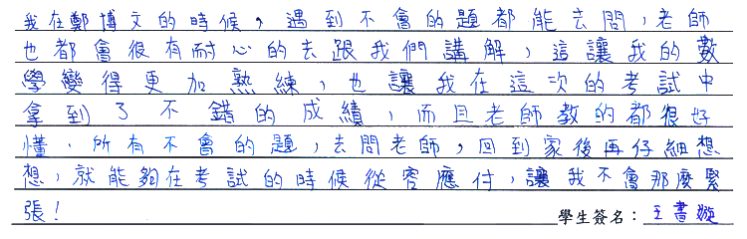 我在鄭博文的時候，遇到不會的題都能去問，老師
也都會很有耐心的去跟我們講解，這讓我的數
學變得更加熟練，也讓我在這次的考試中
拿到了不錯的成績，而且老師教的都很好
懂，所有不會的題，去問老師，回到家後再仔細想
想，就能夠在考試的時候從容應付，讓我不會那麼緊
張！
學生簽名：王書嫙